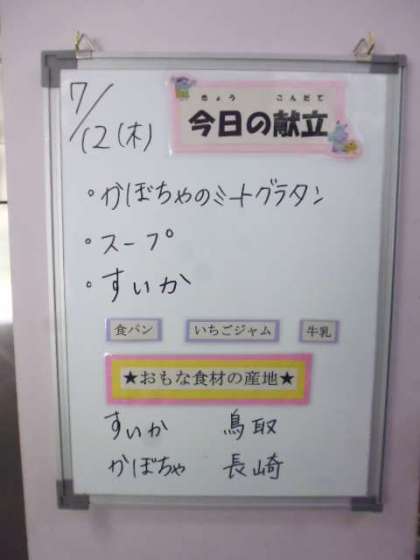 7/12(木)
きょう こんだて
今日の献立
・かぼちゃのミートグラタン
・スープ
・すいか
食パン いちごジャム 牛乳
★おもな食材の産地★
すいか 鳥取
かぼちゃ 長崎